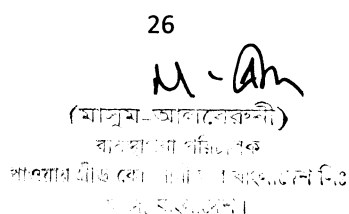 26
(মাসুম-আলবেরুনী)
ব্যবস্থাপনা পরিচালক
পাওয়ার গ্রীড কোম্পানী অব বাংলাদেশ লিঃ